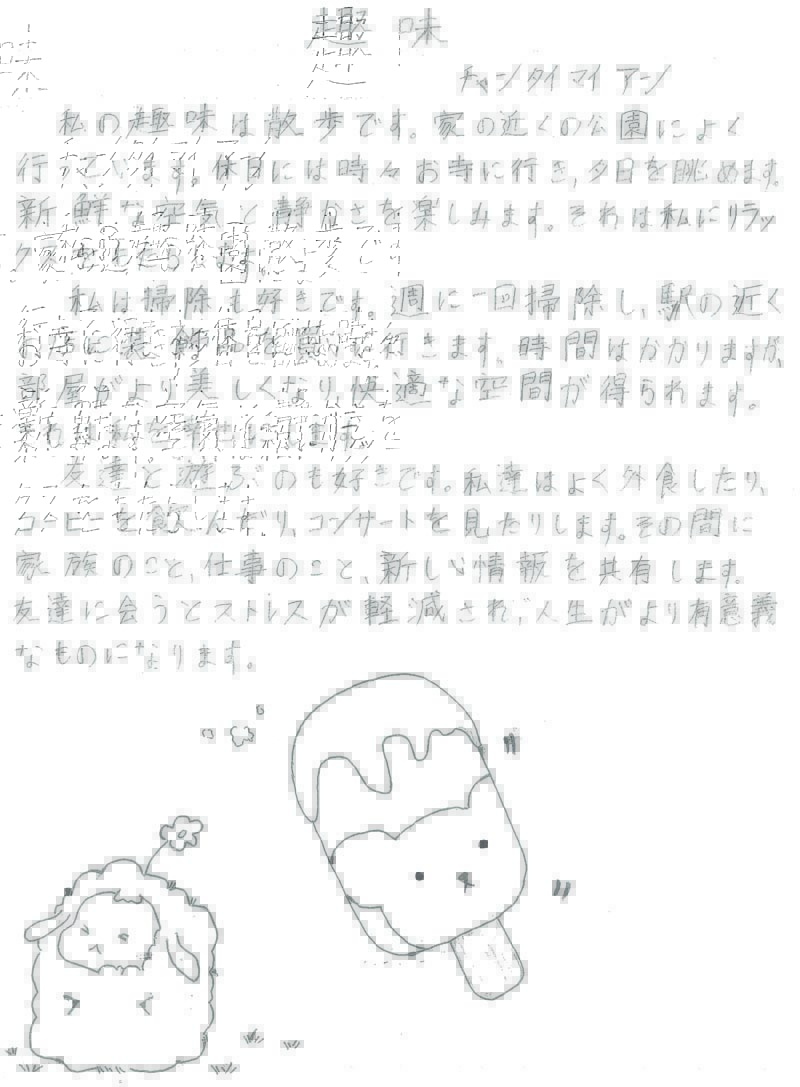 趣味
チャン タイ マイ アン
私の趣味は散歩です。家の近くの公園によく
行っています。休日には時々お寺に行き、夕日を眺めます。
新鮮な空気と静かさを楽しみます。それは私にリラッ
私は掃除も好きです。週に一回掃除し、駅の近く
行きます。時間はかかりますが、
部屋がより美しくなり、快適な空間が得られます。
友達と遊ぶのも好きです。私達はよく外食したり、
コーヒーを飲んだり、コンサートを見たりします。その間に
家族のこと、仕事のこと、新しい情報を共有します。
友達に会うとストレスが軽減され、人生がより有意義
なものになります。